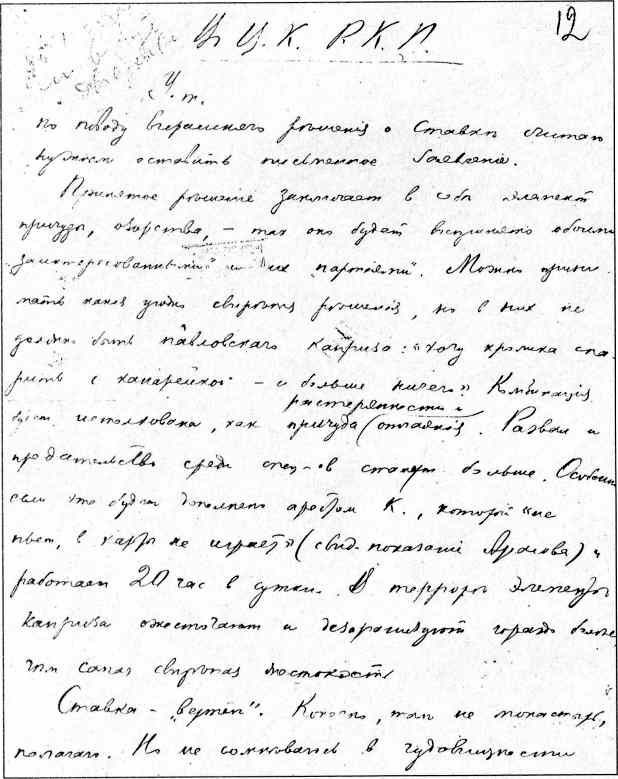 12
В Ц.К. Р.К.П.
У. т.
по поводу вчерашняго рѣшенія о Ставкѣ считаю
нужным оставить письменное заявленіе.
Принятое рѣшеніе заключает в себѣ элемент
причуды, озорства, – так оно будет воспринято обоими
заинтересованными "их партіями". Можно прини
мать какія угодно свирѣпыя рѣшенія, но в них не
должно быть павловскаго каприза: "хочу кролика спа
рить с канарейкой – и больше ничего". Комбинація
будет истолкована, как причуда (растерянности и отчаянія). Развал и
предательство среди спец-ов станут больше. Особенно
если это будет дополнено арестом К., который "не
пьет, в карты не играет" (свид. показаніе Аралова) и
работает 20 час в сутки. В террорѣ элементы
каприза ожесточают и дезорганизуют гораздо больше
чѣм самая свирѣпая жестокость
Ставка – "вертеп". Конечно, там не монастырь,
полагаю. Но не сомнѣваюсь в чудовищности